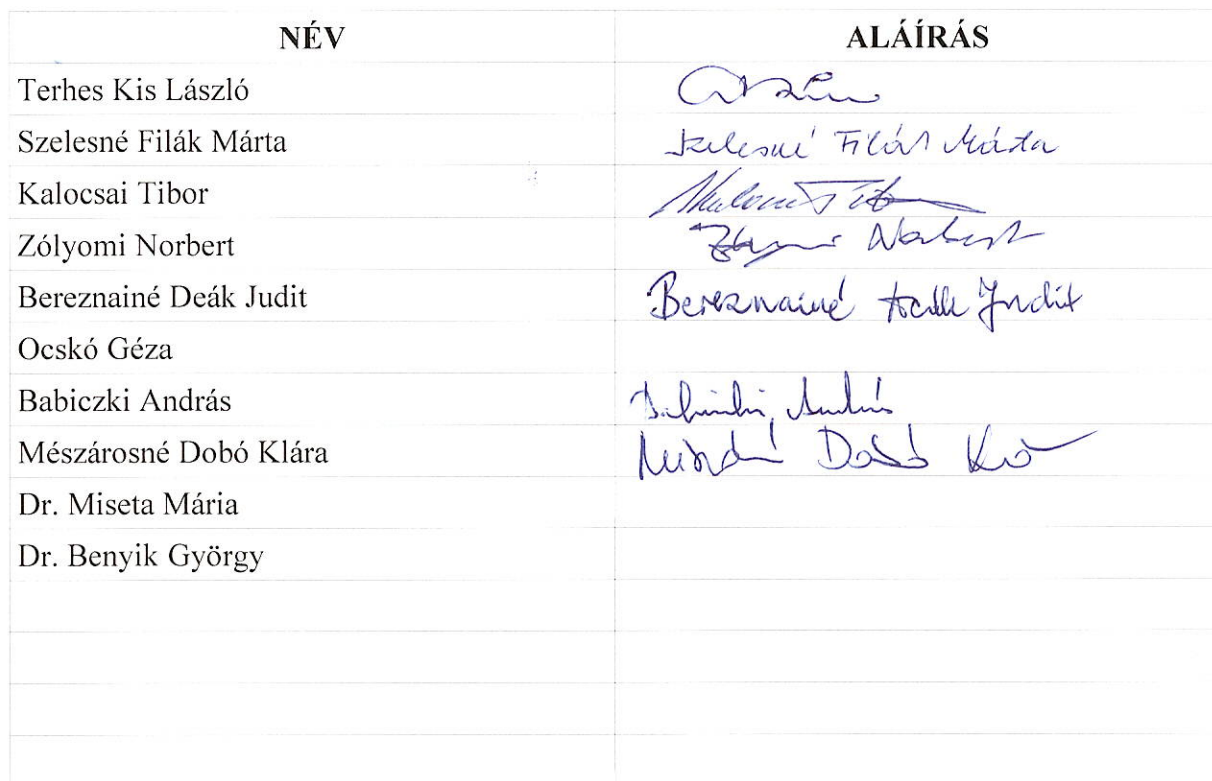 NÉV ALÁÍRÁS
Terhes Kis László
Szelesné Filák Márta Szelesné Filák Márta
Kalocsai Tibor
Zólyomi Norbert Norbert
Bereznainé Deák Judit Bereznainé Deák Judit
Ocskó Géza
Babiczki András András
Mészárosné Dobó Klára Dobó
Dr. Miseta Mária
Dr. Benyik György